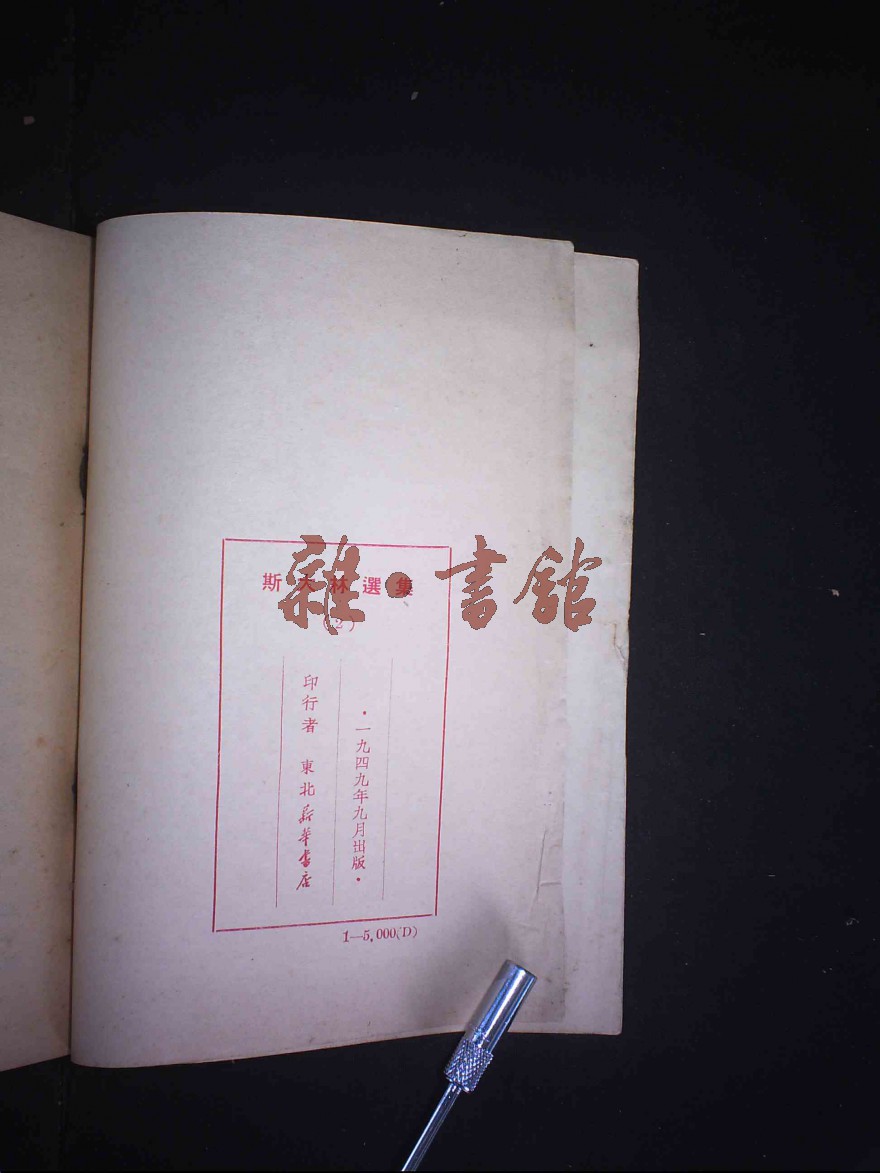 斯大林選集
(2)
·一九四九年九月出版·
印行者 東北新華書店
1—5,000(D)
雜·書館